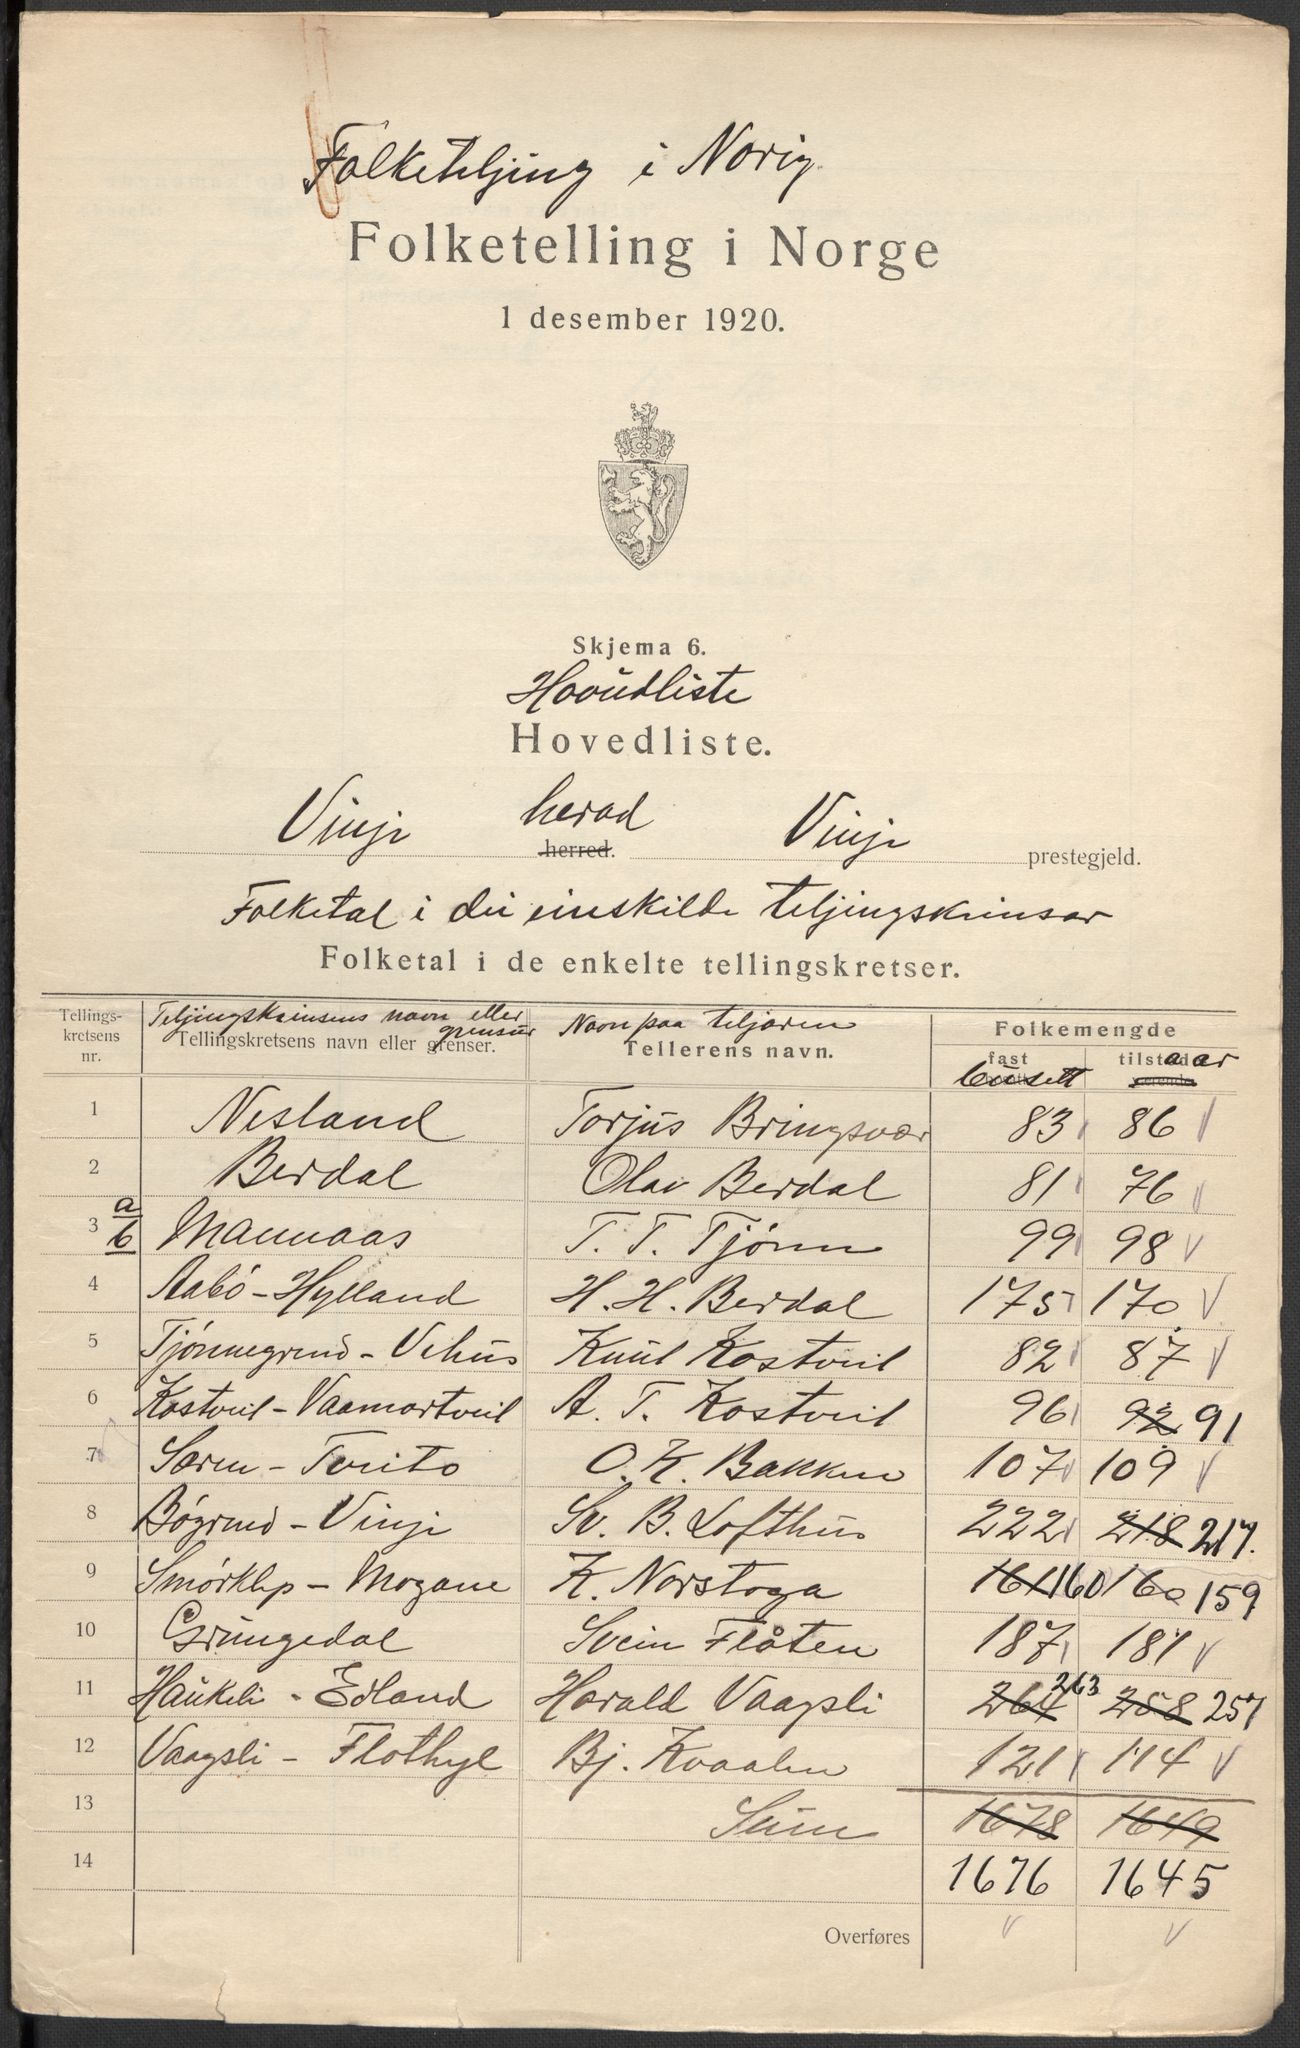 Folketeljing i Norig.
Folketelling i Norge
1 desember 1920.
Skjema 6.
Hovudliste
Hovedliste.
Vinje herad Vinje
herred. prestegjeld.
Folketal i dei einskilde teljingskrinsar
Folketal i de enkelte tellingskretser.
Tellingskretsens nr. Teljingskrinsens navn eller grensur Navn paa teljaren Folkemengde
Tellingskretsens navn eller grenser. Tellerens navn. fast busett tilstedaar
1 Nesland Torjus Bringsvær 83 86
2 Berdal Olav Berdal 81 76
3 a/b Mannaas T. T. Tjønn 99 98
4 Aabø - Hylland H. H. Berdal 175 170
5 Tjønnegrend - Vehus Knut Kostveit 82 87
6 Kostveit - Vaamartveit A. T. Kostveit 96 92 91
7 Særen - Tveito O. K. Bakken 107 109
8 Bøgrend - Vinje Sv. B. Lofthus 222 218 217.
9 Smørklep - Mogane K. Norstoga 161 160 160 159
10 Grungedal Svein Flåten 187 181
11 Haukeli - Edland Harald Vaagsli 264 263 258 257
12 Vaagsli - Flothyl Bj. Kvaalen 121 114
13 Sum 1678 1649
14 1676 1645
Overføres